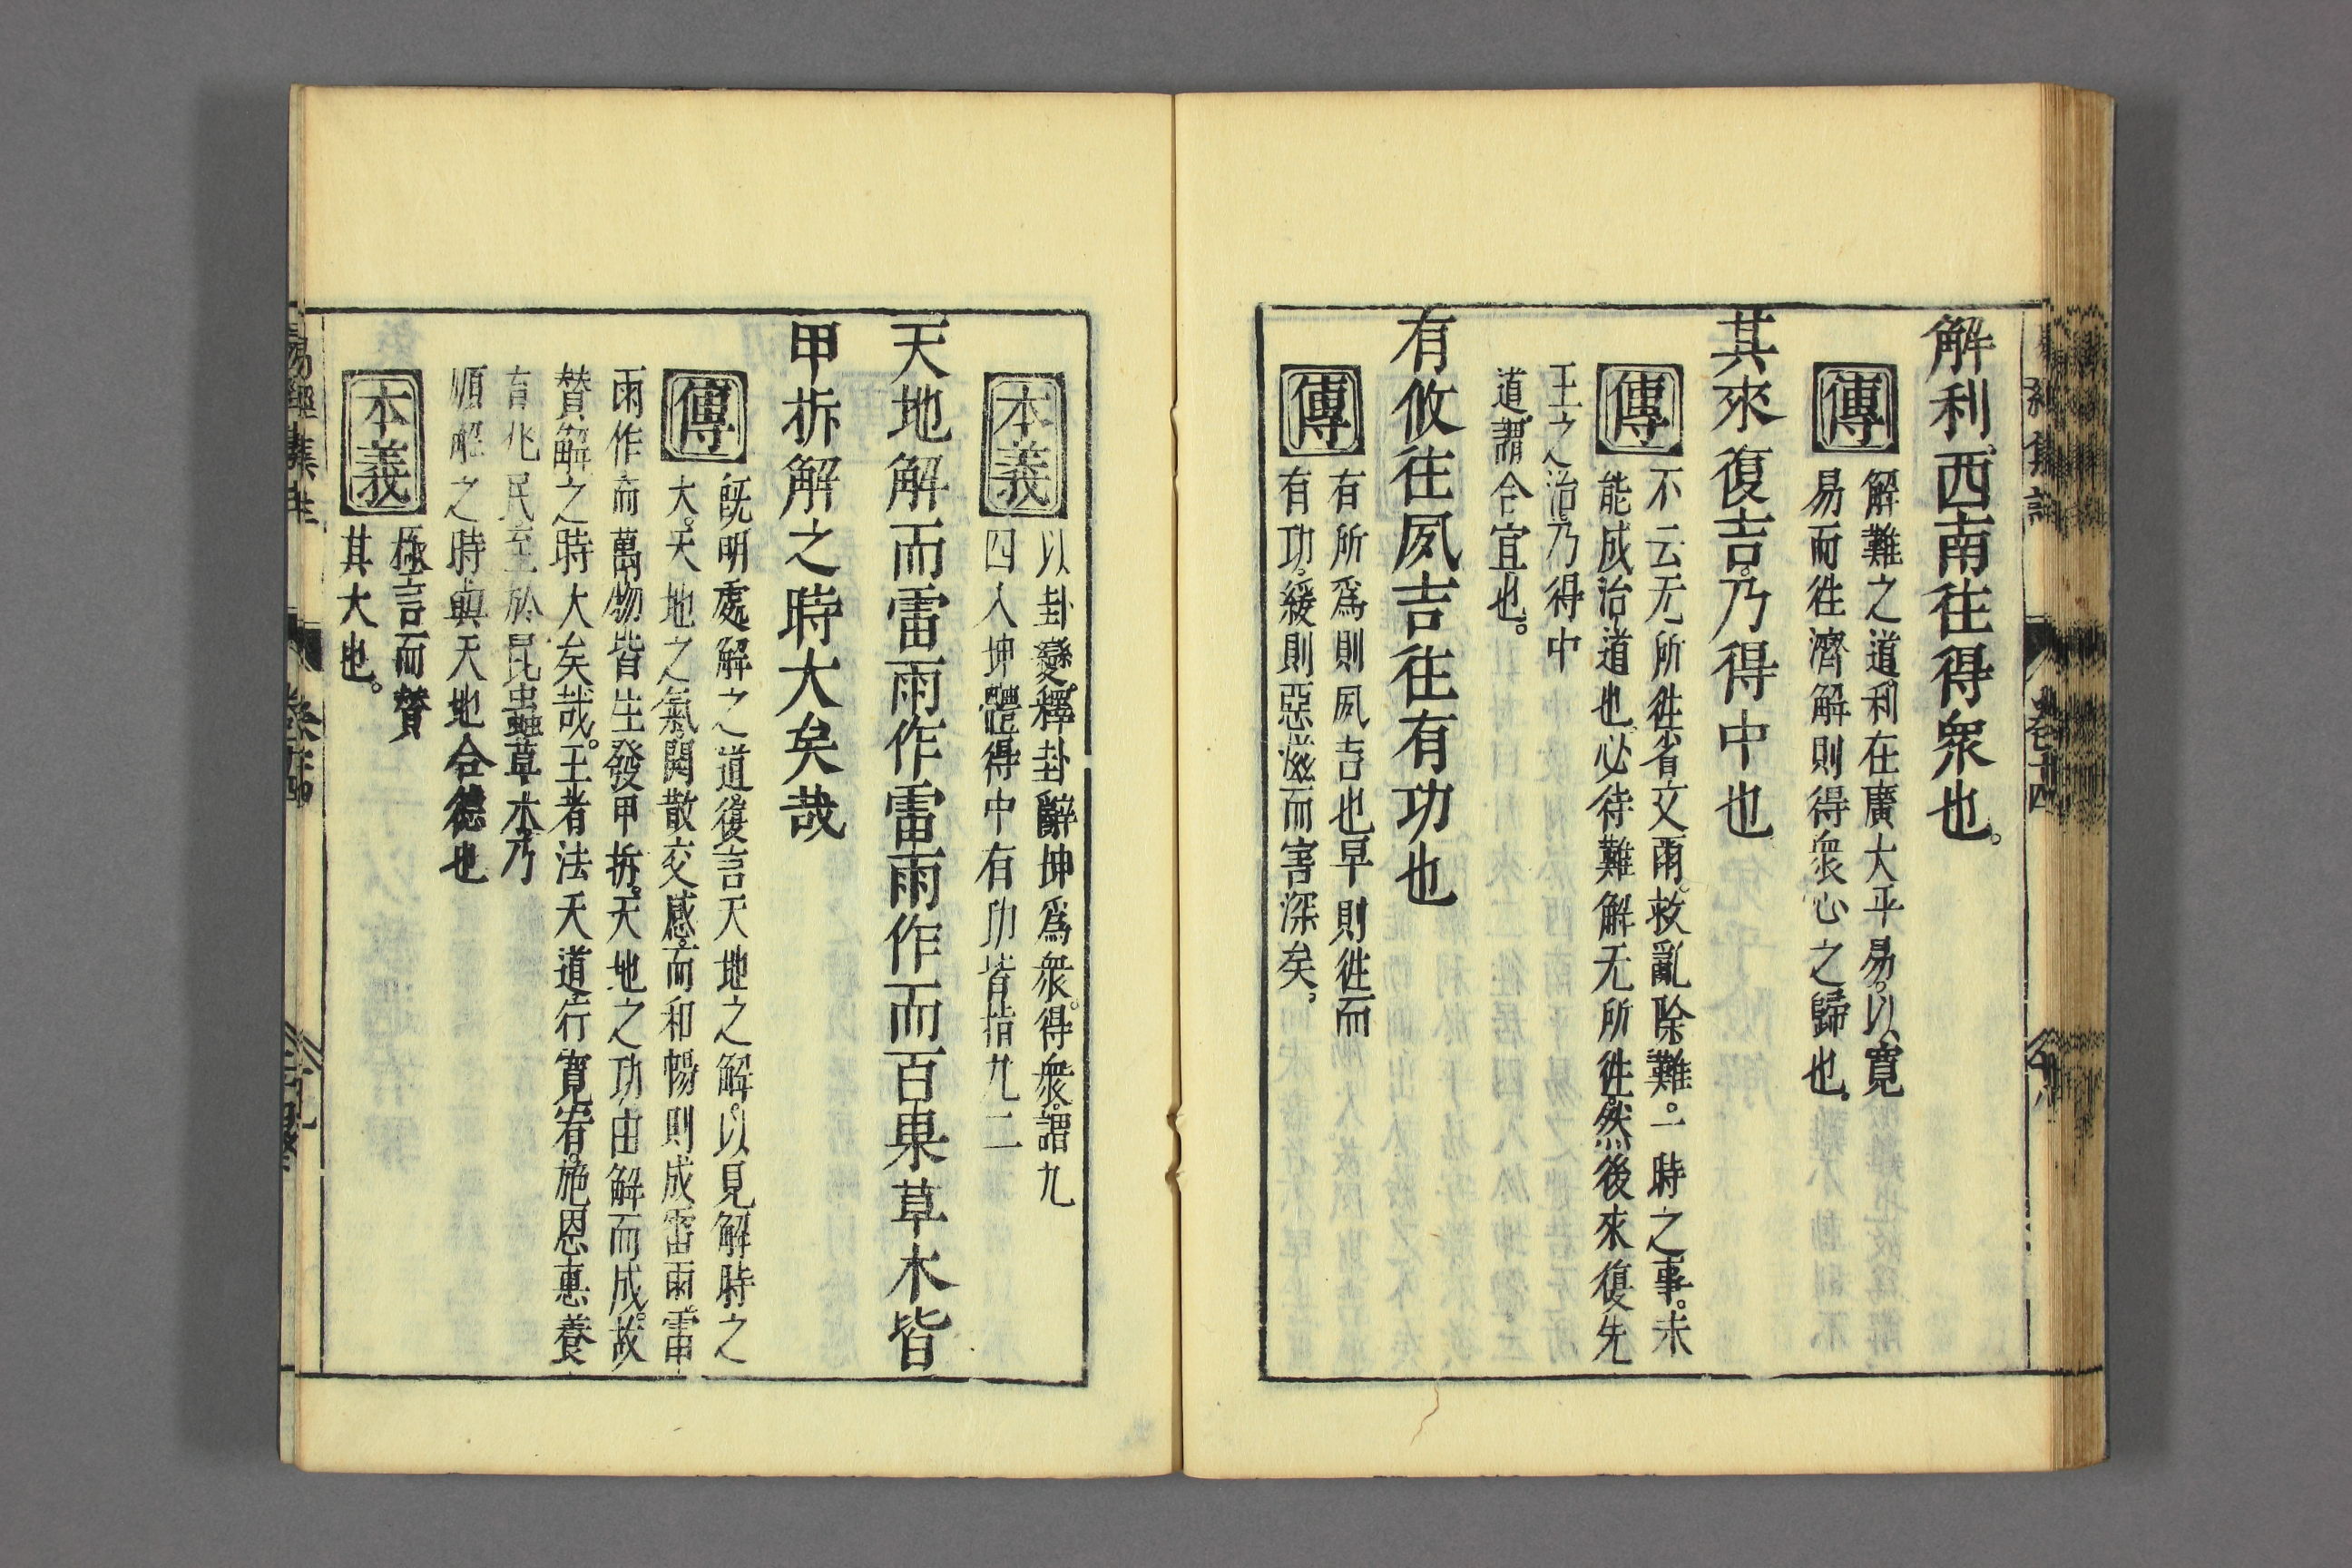 解利西南往得衆也。
傳
解難之道。利在廣大平易。以寛
易而徃濟解則得衆心之歸也。
其來復吉。乃得中也
傳
不云无所徃省文爾。救亂除難。一時之事。未
能成治道也。必待難解无所徃。然後來復先
王之治。乃得中
道。謂合宜也。
有攸往夙吉往有功也
傳
有所爲則夙吉也早則徃而
有功。緩則惡滋而害深矣。
本義
以卦變。釋卦辭坤爲衆。得衆。謂九
四入坤體得中有功皆指九二
天地解而雷雨作雷雨作而百果草木皆
甲拆解之時大矣哉
傳
既明處解之道復言天地之解。以見解時之
大。天地之氣開散交感。而和暢則成雷雨。雷
雨作而萬物皆生發甲拆。天地之功由解而成。故
賛解之時大矣哉。王者法天道行寛宥。施恩惠養
育兆民至於昆虫草木乃
順解之時與天地合德也
本義
極言而賛
其大也。
易經集註
卷十四